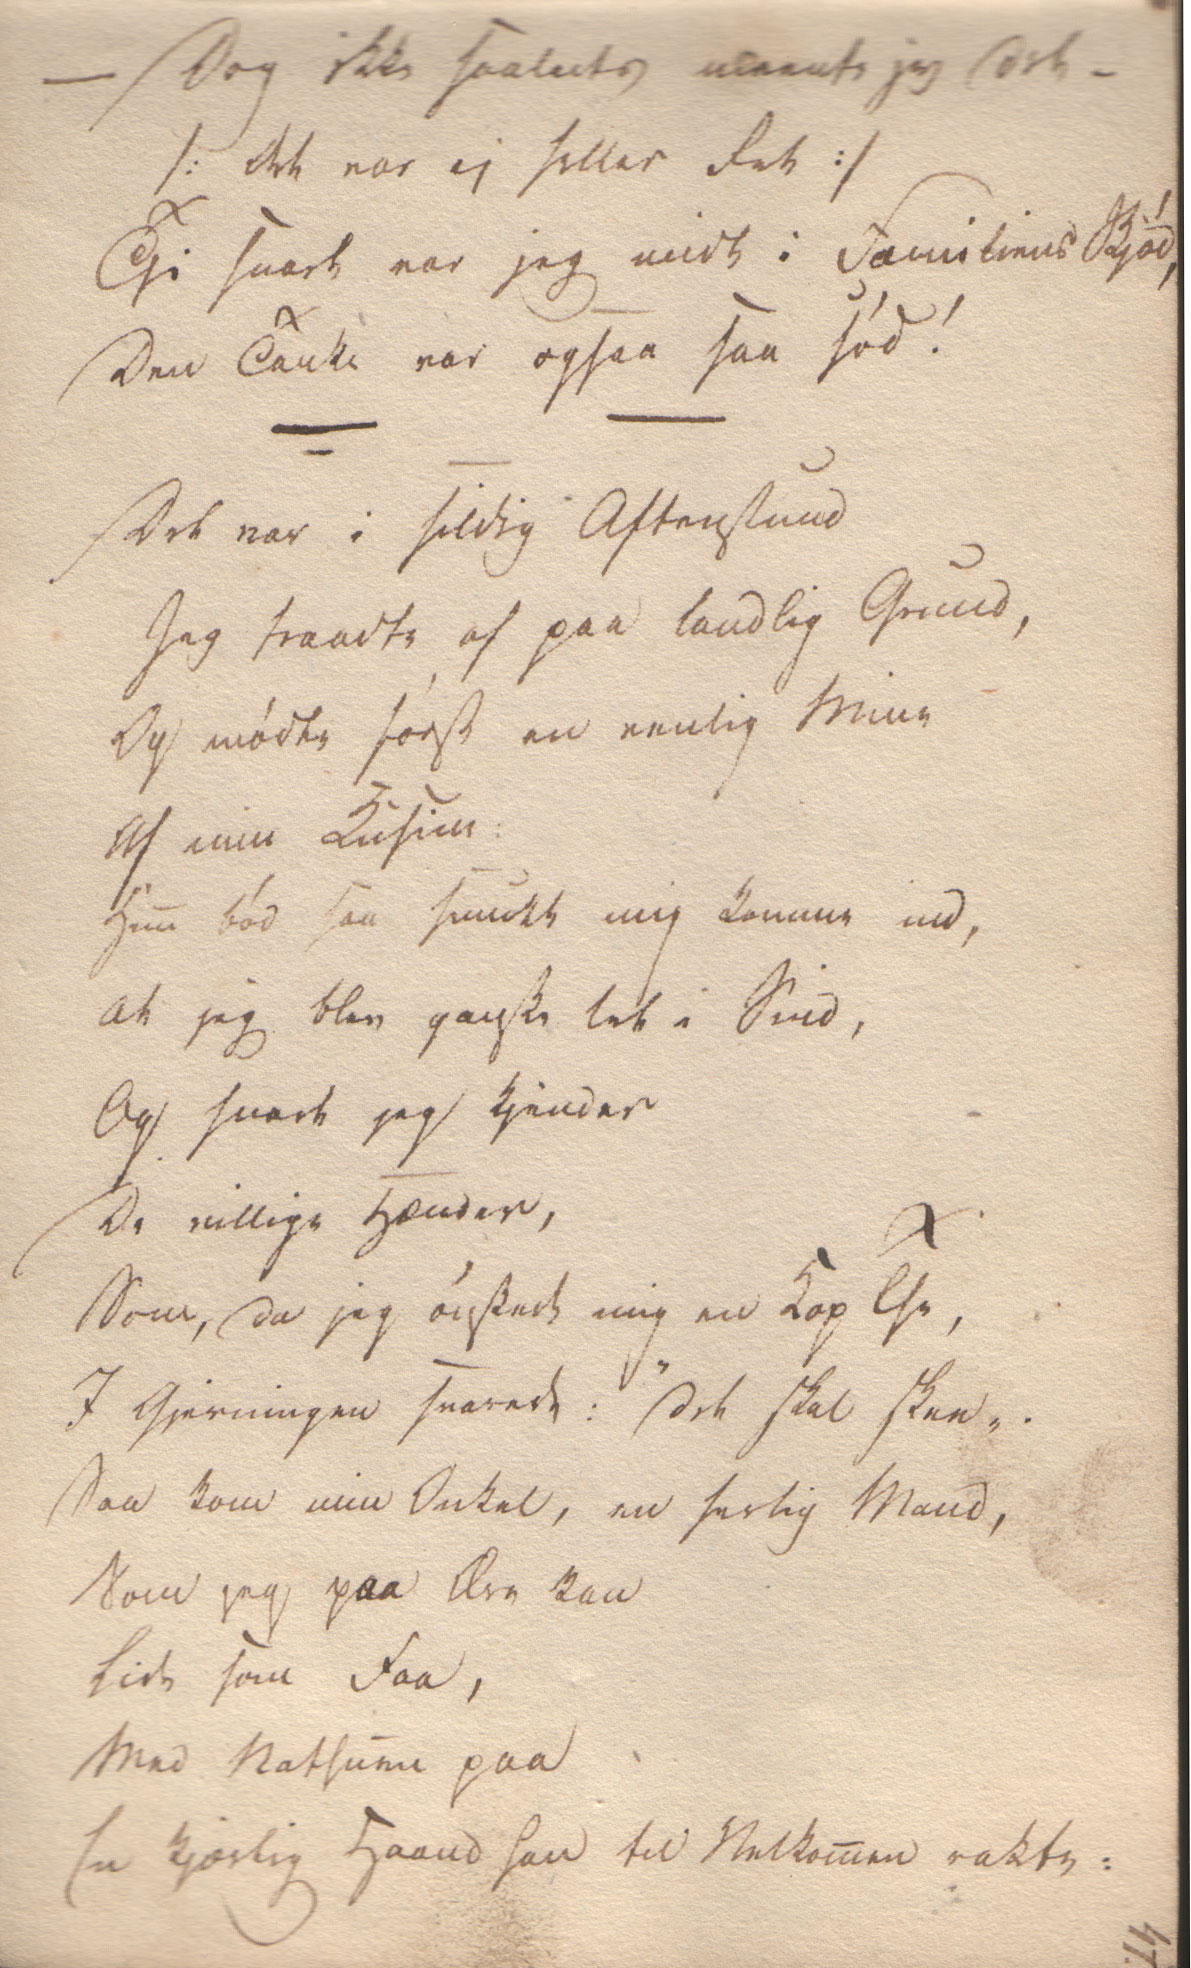 — Dog ikke saaledes meente jeg det –
/: det var ej heller Ret :/
Thi snart var jeg midt i Familiens Skjód,
Den Tanke var ogsaa saa sód!
Det var i sildig Aftenstund
Jeg traadte af paa landlig Grund,
Og módte fórst en venlig Mine
Af min Kusine:
Hun bód saa smukt mig komme ind,
at jeg blev ganske let i Sind,
Og snart jeg kjender
De villige Hænder,
Som, da jeg ónsked mig en Kop The,
I Gjerningen svarede: "Det skal skee„.
Saa kom min Onkel, en herlig Mand,
Som jeg paa Ære kan
Lide som Faa,
Med Nathuen paa
En kjærlig Haand han til Velkom̅en rakte:
47.